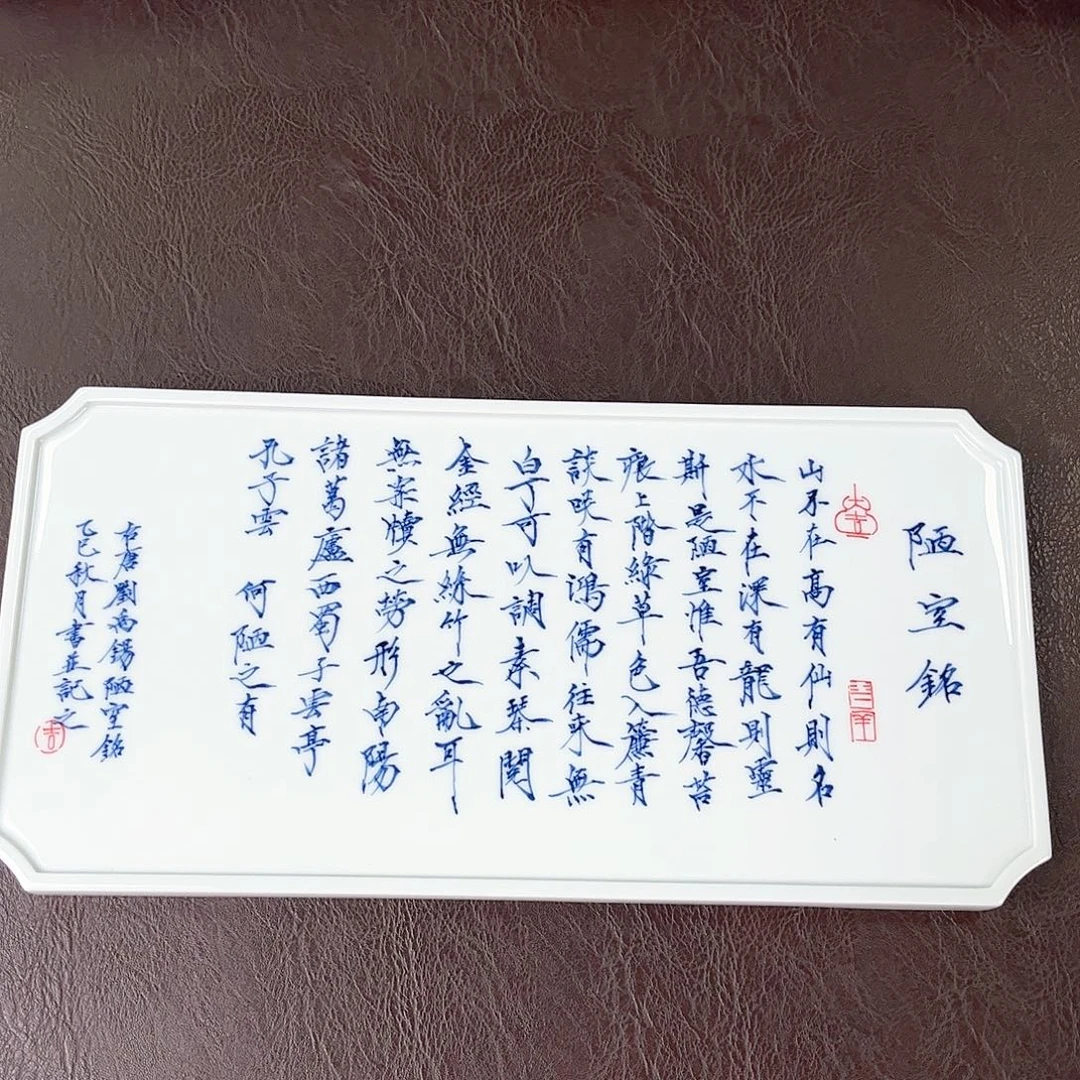 陋室銘
山不在高有仙則名
水不在深有龍則靈
斯是陋室惟吾德馨苔
痕上階綠草色入簾青
談咲有鴻儒往來無
白丁可以調素琴閱
金經無絲竹之亂耳
無案牘之勞形南陽
諸葛廬西蜀子雲亭
孔子雲 何陋之有
右唐劉禹錫陋室銘
乙巳秋月書並記之